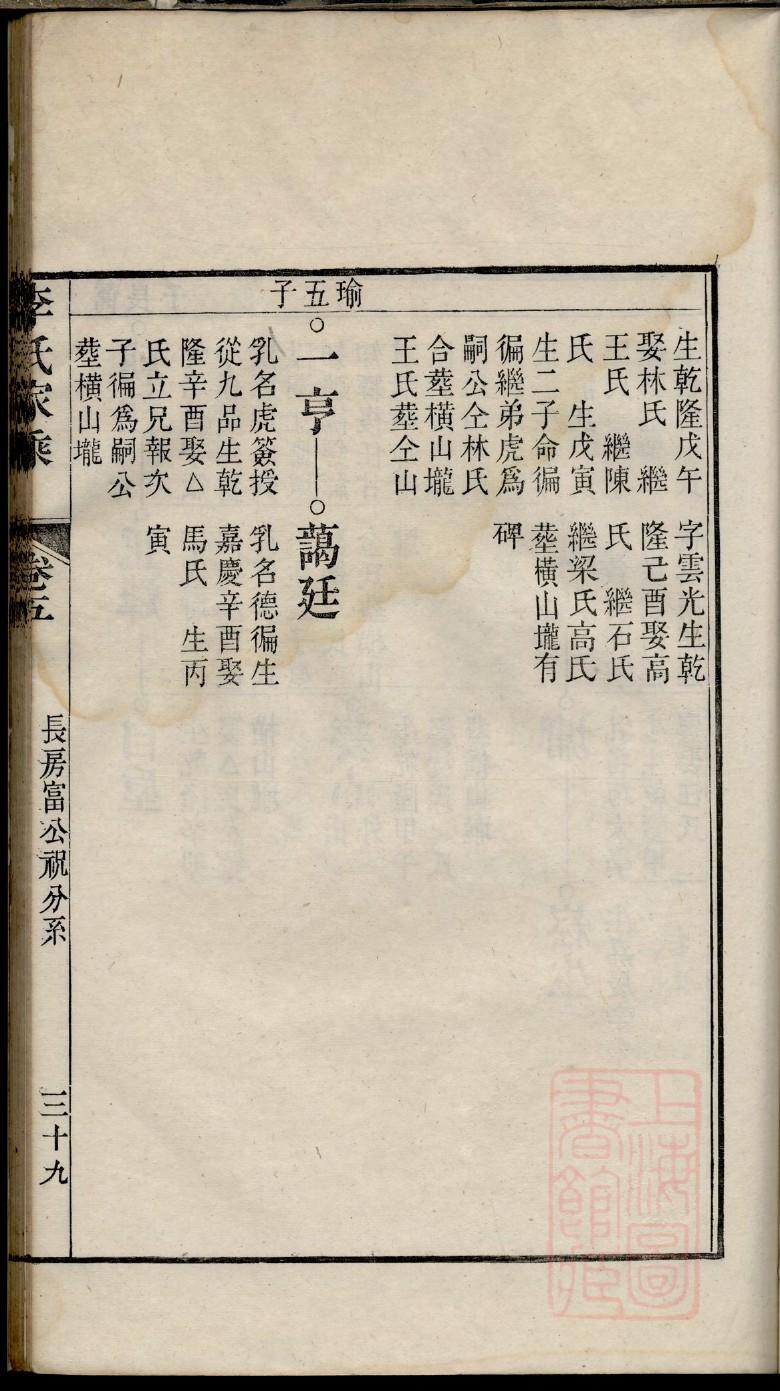 生乾隆戊午
娶林氏　繼
王氏　繼陳
氏　生戊寅
生二子命徧
徧繼弟虎爲
嗣公仝林氏
合塟橫山壠
王氏塟仝山
字雲光生乾
隆己酉娶高
氏　繼石氏
繼梁氏高氏
塟橫山壠有
碑
瑜五子
一亨
乳名虎簽授
從九品生乾
隆辛酉娶△
氏立兄報次
子徧爲嗣公
塟橫山壠
藹廷
乳名德徧生
嘉慶辛酉娶
馬氏　生丙
寅
李氏家乘
卷五
長房富公祝分系
三十九
上海圖
書館藏